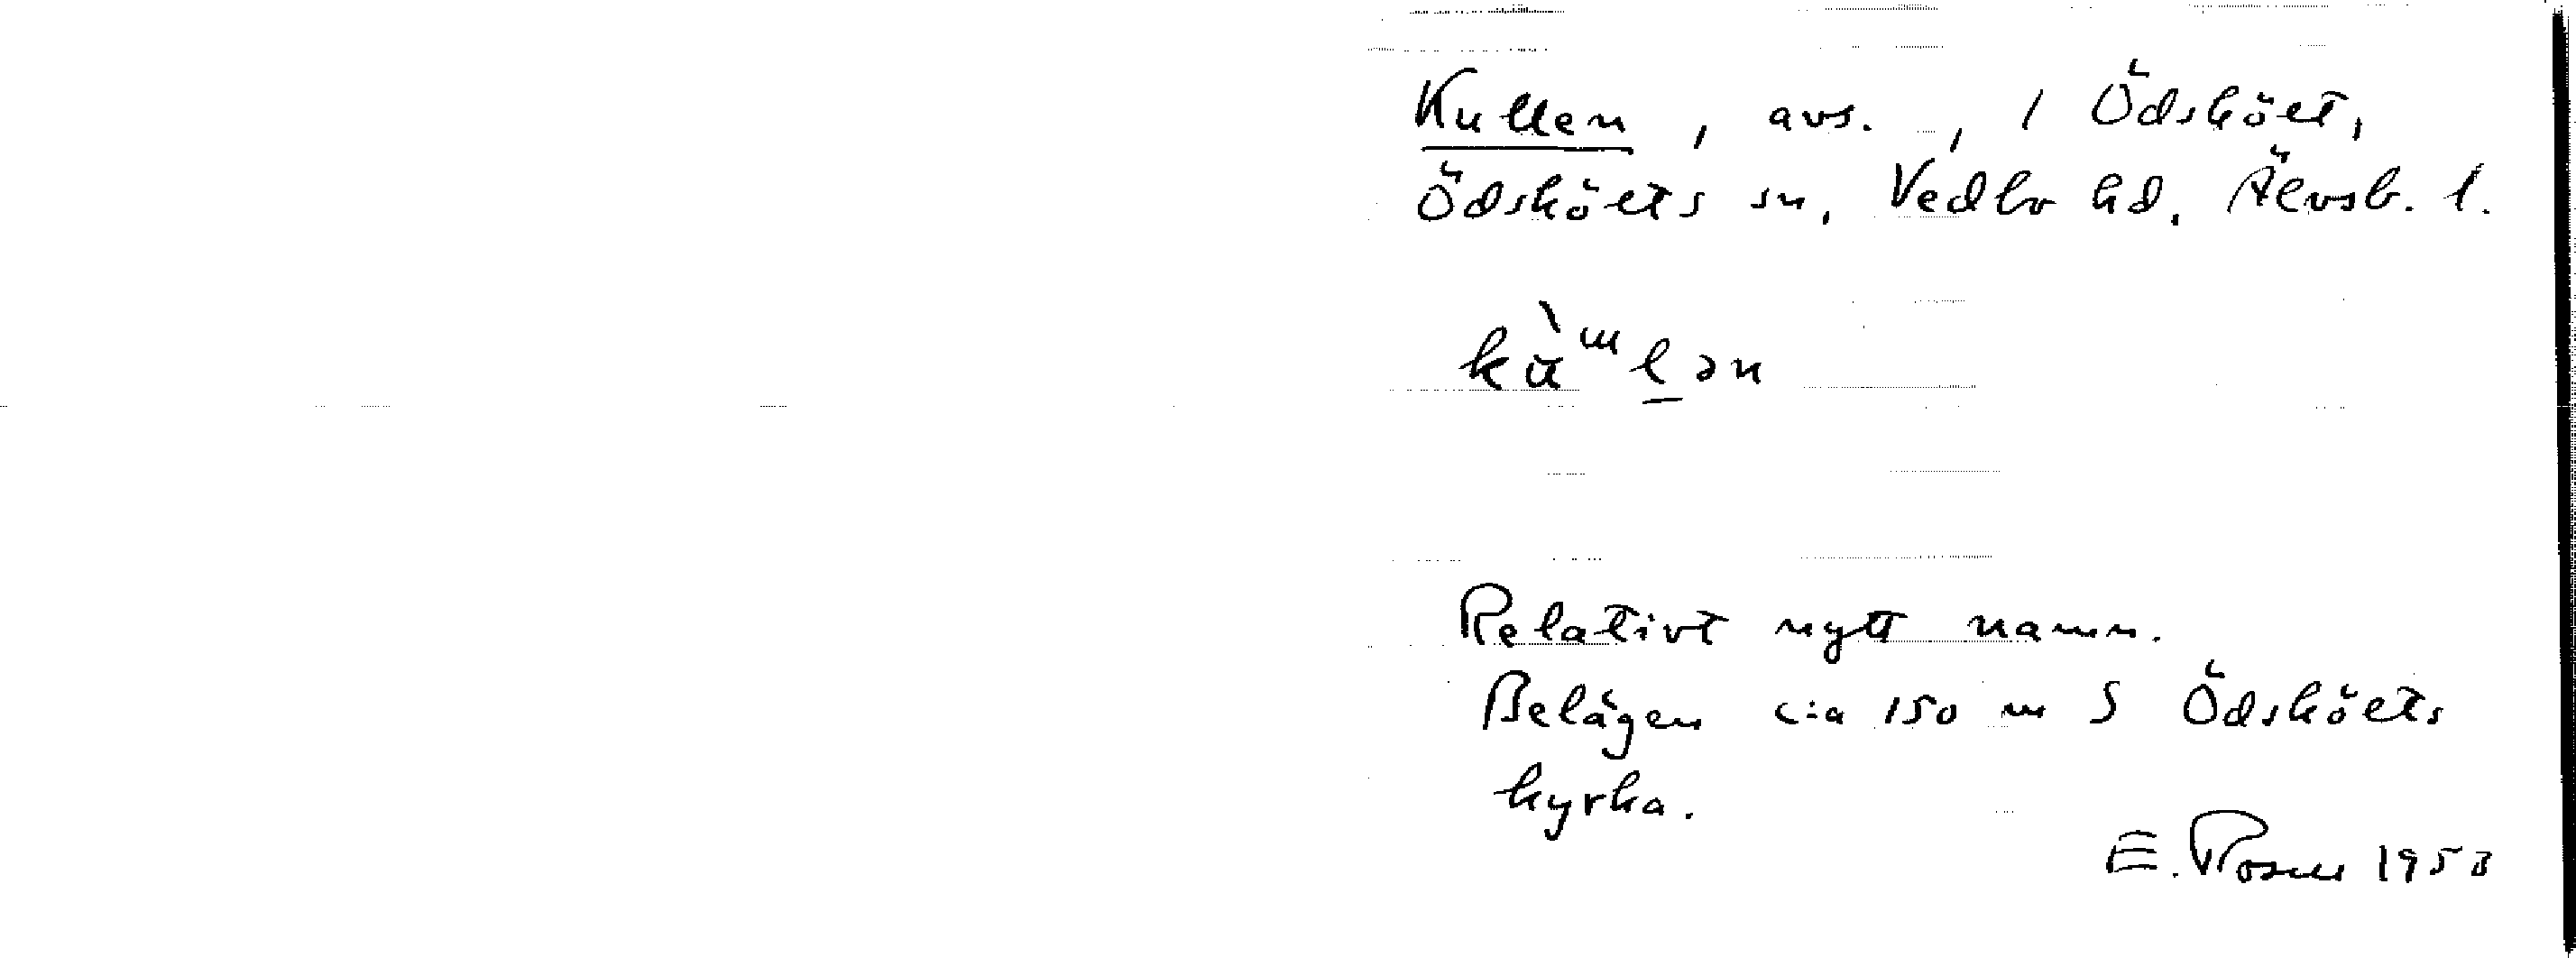 Kullen, avs., i Ödskölt,
Ödskölts sn, Vedbo hd, Älvsb. l.
Relativt nytt namn.
Belägen c:a 150 m S Ödskölts
kyrka.
E. Rosell 1953